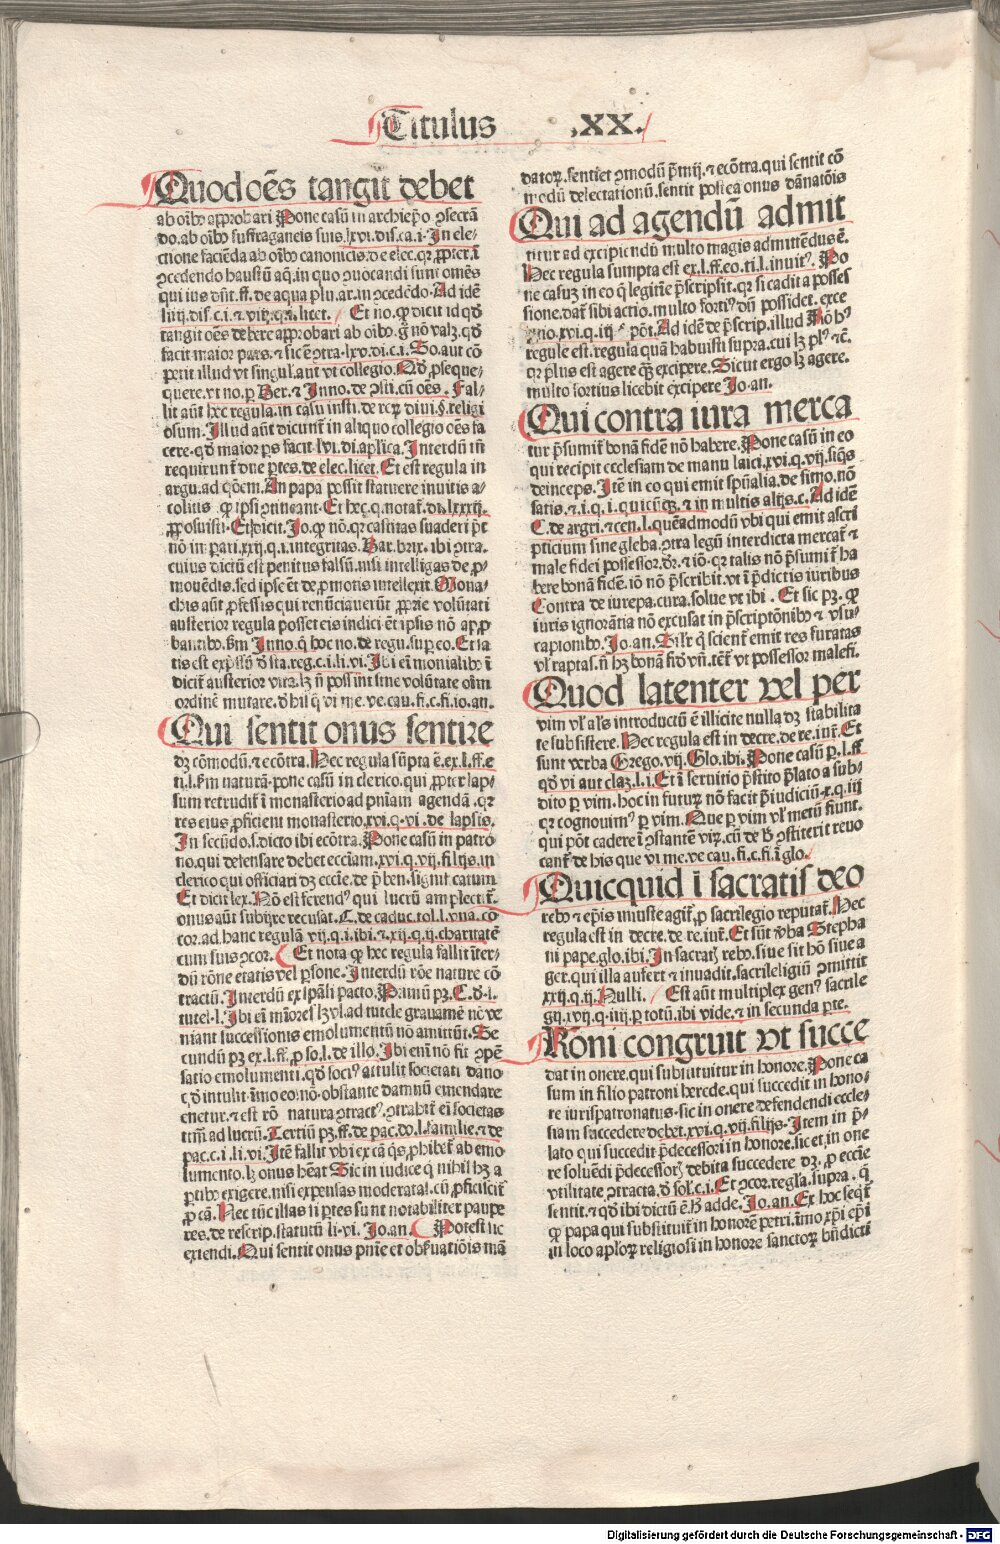 Titulus .XX.
Quod oẽs tangit debet
ab oĩbꝰ approbari Pone casũ in archiep̃o ꝯsecrã
do. ab oĩbꝰ suffraganeis suis. lxvi. dis. ca. i. In ele-
ctione faciẽda ab oĩbꝰ canonicis. de elec. qꝛ ꝓpter. i
ꝯcedendo haustũ aq̃. in quo ꝯuocandi sunt omẽs
qui ius dñt. ff. de aqua plu. ar. in ꝯcedẽdo. Ad idẽ
liiij. dis. c. i. licet. Et no. ꝙ dicit id qđ
tangit oẽs debere approbari ab oĩbꝰ. g̃ nõ valꝫ. qđ
facit maior pars. ⁊ sic ẽ ꝯtra. lxv. di. c. i. So. aut cõ
petit illud vt singul. aut vt collegio. ꝓseque-
quere. vt no. ꝑ Ber. ⁊ Inno. de ꝯsti. cũ oẽs. Fal-
lit aũt hec regula. in casu insti. de rerꝫ diui. §. religi
osum. Illud aũt dicunt̃ in aliquo collegio oẽs fa
cere. qđ maior ps facit. lvi. di. apl̃ica. Interdũ tñ
requirunt̃ due ꝑtes. de elec. licet. Et est regula in
argu. ad q̃oẽm. An papa possit statuere inuitis a-
colitis ꝙ ipsi ꝯtineant. Et hec. q. notat̃. di. lxxxij.
ꝓposuisti. Et dicit. Jo. ꝙ nõ. qꝛ castitas suaderi põt
nõ imperari. xxij. q. i. integritas. Bar. brix. ibi ꝯtra.
cuius dictũ est penitus falsũ. nisi intelligas de ꝓ-
mouẽdis. sed ipse ẽt de ꝓmotis intellexit. Mona-
chis aũt ꝓfessis qui renũciauerũt ꝓprie volũtati
austerior regula posset eis indici ẽt ipsis nõ apꝓ
bantibꝰ. sm Inno. q̃ hoc no. de regu. super eo. Et ra
tio est expressa đ sta. reg. c. i. li. vi. Ibi ei monialibꝰ ĩ
dicit̃ austerior vita. lꝫ ñ possint sine volũtate oĩm
ordinẽ mutare. đ his q̃ vi me. ve cau. fi. c. fi. io. an.
Qui sentit onus sentire
dꝫ cõmodũ. ⁊ ecõtra. Hec regula sũpta ẽ. ex. l. ff. e
ti. l. sm naturã. pone casũ in clerico. qui ꝓpter lap-
sum retrudit̃ ĩ monasterio ad pniam agendã. qꝛ
res eius ꝓficient monasterio. xvi. q. vi. de lapsis.
In scd̃o. s. dicto ibi ecõtra. Pone casũ in patro
no. qui defensare debet eccl̃iam. xvi. q. vij. filijs. in
clerico qui officiari dꝫ eccl̃ie. de p̃ben. significatum.
Et dicit lex. Nõ est ferendꝰ qui lucrũ amplectit̃.
onus aũt subijre recusat. C. de caduc. tol. l. vna. cõ
cor. ad hanc regulã vij. q. i. ibi. ⁊ xij. q. ij. charitatẽ
cum suis ꝯcor. Et nota ꝙ hec regula fallit ĩter-
dũ rõne etatis vel ꝑsone. Interdũ rõe nature cõ
tractũ. Interdũ ex sp̃ali pacto. Primũ pꝫ. C. đ. l.
tutel. l. Ibi ei mĩores lꝫ vl ad tutele grauamẽ nõ ve
niant successionis emolumentũ nõ amittũt. Se
cundũ pꝫ ex. l. ff. ꝓ so. l. de illo. Ibi enĩ nõ fit ꝯpẽ
satio emolumenti. qđ sociꝰ attulit societati dãno
qđ intulit. ĩmo eo. nõ. obstante damnũ emendare
tenetur. ⁊ est rõ natura ꝯtractꝰ. ꝯtrahit̃ ei societas
tm̃ ad lucrũ. Tertiũ pꝫ. ff. de pac. do. l. familie. ⁊ de
pac. c. i. li. vi. Itẽ fallit vbi ex cã q̃s ꝓhibet̃ ab emo
lumento. lꝫ onus heat Sic in iudice q̃ nihil hꝫ a
ꝑtibꝰ exigere. nisi expensas moderatas. cũ ꝓficiscit̃
ꝓ cã. Nec tũc illas si ꝑtes sunt notabiliter paupe
res. de rescrip. statutũ li. vi. Jo. an. Potest sic
extendi. Qui sentit onus pnie et obseruatiõis mã
datorꝫ. sentiet ꝯmodũ p̃mij. ⁊ ecõtra. qui sentit cõ
modũ delectationũ. sentit postea onus dãnatõis
Qui ad agendũ admit
titur ad excipiendũ multo magis admittendus ẽ.
Hec regula sumpta est ex. l. ff. eo. ti. l. inuitꝰ. Po
ne casuꝫ in eo q̃ legitime p̃scripsit. qꝛ si cadit a posses
sione. dat̃ sibi actio. multo fortiꝰ dũ possidet. exce
ptio. xvi. q. iij põt. Ad idẽ de p̃scrip. illud Rõ hꝰ
regule est. regula quã habuisti supra. cui lꝫ plꝰ ⁊c.
qꝛ plus est agere qꝫ excipere. Sicut ergo lꝫ agere.
multo fortius licebit excipere Jo. an.
Qui contra iura merca
tur p̃sumit̃ bonã fidẽ nõ habere. Pone casũ in eo
qui recipit ecclesiam de manu laici. xvi. q. vij. siq̃s
deinceps. Itẽ in eo qui emit sp̃ualia. de simo. nõ
satis. ⁊. i. q. i. quicũqꝫ. ⁊ in multis alijs. c. Ad idẽ
C. de agri. ⁊ cen. l. quẽadmodũ vbi qui emit ascri
pticium sine gleba. ꝯtra legũ interdicta mercat̃ ⁊
male fidei possessor. dr̃. ⁊ iõ. qꝛ talis nõ p̃sumit̃ ha
bere bonã fidẽ. iõ nõ p̃scribit. vt ĩ p̃dictis iuribus
Contra de iurepa. cura. solue vt ibi. Et sic pꝫ. ꝙ
iuris ignorãtia nõ excusat in p̃scriptõnibꝰ ⁊ vsu-
captiõibꝰ. Jo. an. Silr̃ q̃ scient̃ emit res furatas
vl̃ raptas. ñ hꝫ bonã fidẽ vñ. tenet̃ vt possessor malefi.
Quod latenter vel per
vim vl̃ als introductũ ẽ illicite nulla dꝫ stabilita
te subsistere. Hec regula est in decre. de re. iur̃. Et
sunt verba Grego. vij. Glo. ibi. Pone casũ p. l. ff
qđ vi aut claꝫ. l. i. Et ĩ seruitio p̃stito p̃lato a sub-
dito ꝑ vim. hoc in futurꝫ nõ facit p̃iudiciũ. x. q. iij
qꝛ cognouimꝰ ꝑ vim. Que ꝑ vim vl̃ metũ fiunt.
qui põt cadere ĩ ꝯstantẽ virꝫ. cũ de hꝰ ꝯstiterit reuo
cant̃ de his que vi me. ve cau. fi. c. fi. ĩ glo.
Quicquid ĩ sacratis deo
rebꝰ ⁊ ep̃is iniuste agit̃. ꝓ sacrilegio reputat̃. Hec
regula est in decre. de re. iur̃. Et sũt v̾ba Stepha
ni pape. glo. ibi. In sacratꝫ rebꝰ. siue sit hõ siue a
ger. qui illa aufert ⁊ inuadit. sacrilegiũ ꝯmittit
xxij. q. ij. Nulli. Est aũt multiplex genꝰ sacrile
gij. xvij. q. iiij. ꝑ totũ. ibi vide. ⁊ in secunda ꝑte.
Rõni congruit vt succe
dat in onere. qui substituitur in honore. Pone ca
sum in filio patroni herede. qui succedit in hono-
re iurispatronatus. sic in onere defendendi eccle-
siam succedere debet. xvi. q. vij. filijs. Item in p̃-
lato qui succedit p̃decessori in honore. sic et in one
re soluẽdi p̃decessorꝫ debita succedere dꝫ. ꝓ eccl̃ie
vtilitate ꝯtracta. đ solu. c. i. Et ꝯcor. regl̃a. supra. q̃
sentit. ⁊ qđ ibi dictũ ẽ. hꝰ adde. Jo. an. Et hoc seqt̃
ꝙ papa qui substituit̃ in honorẽ petri. ĩmo xp̃i ep̃i
in loco apl̃orꝫ religiosi in honore sanctorꝫ bñdicti
Digitalisierung gefördert durch die Deutsche Forschungsgemeinschaft - DFG